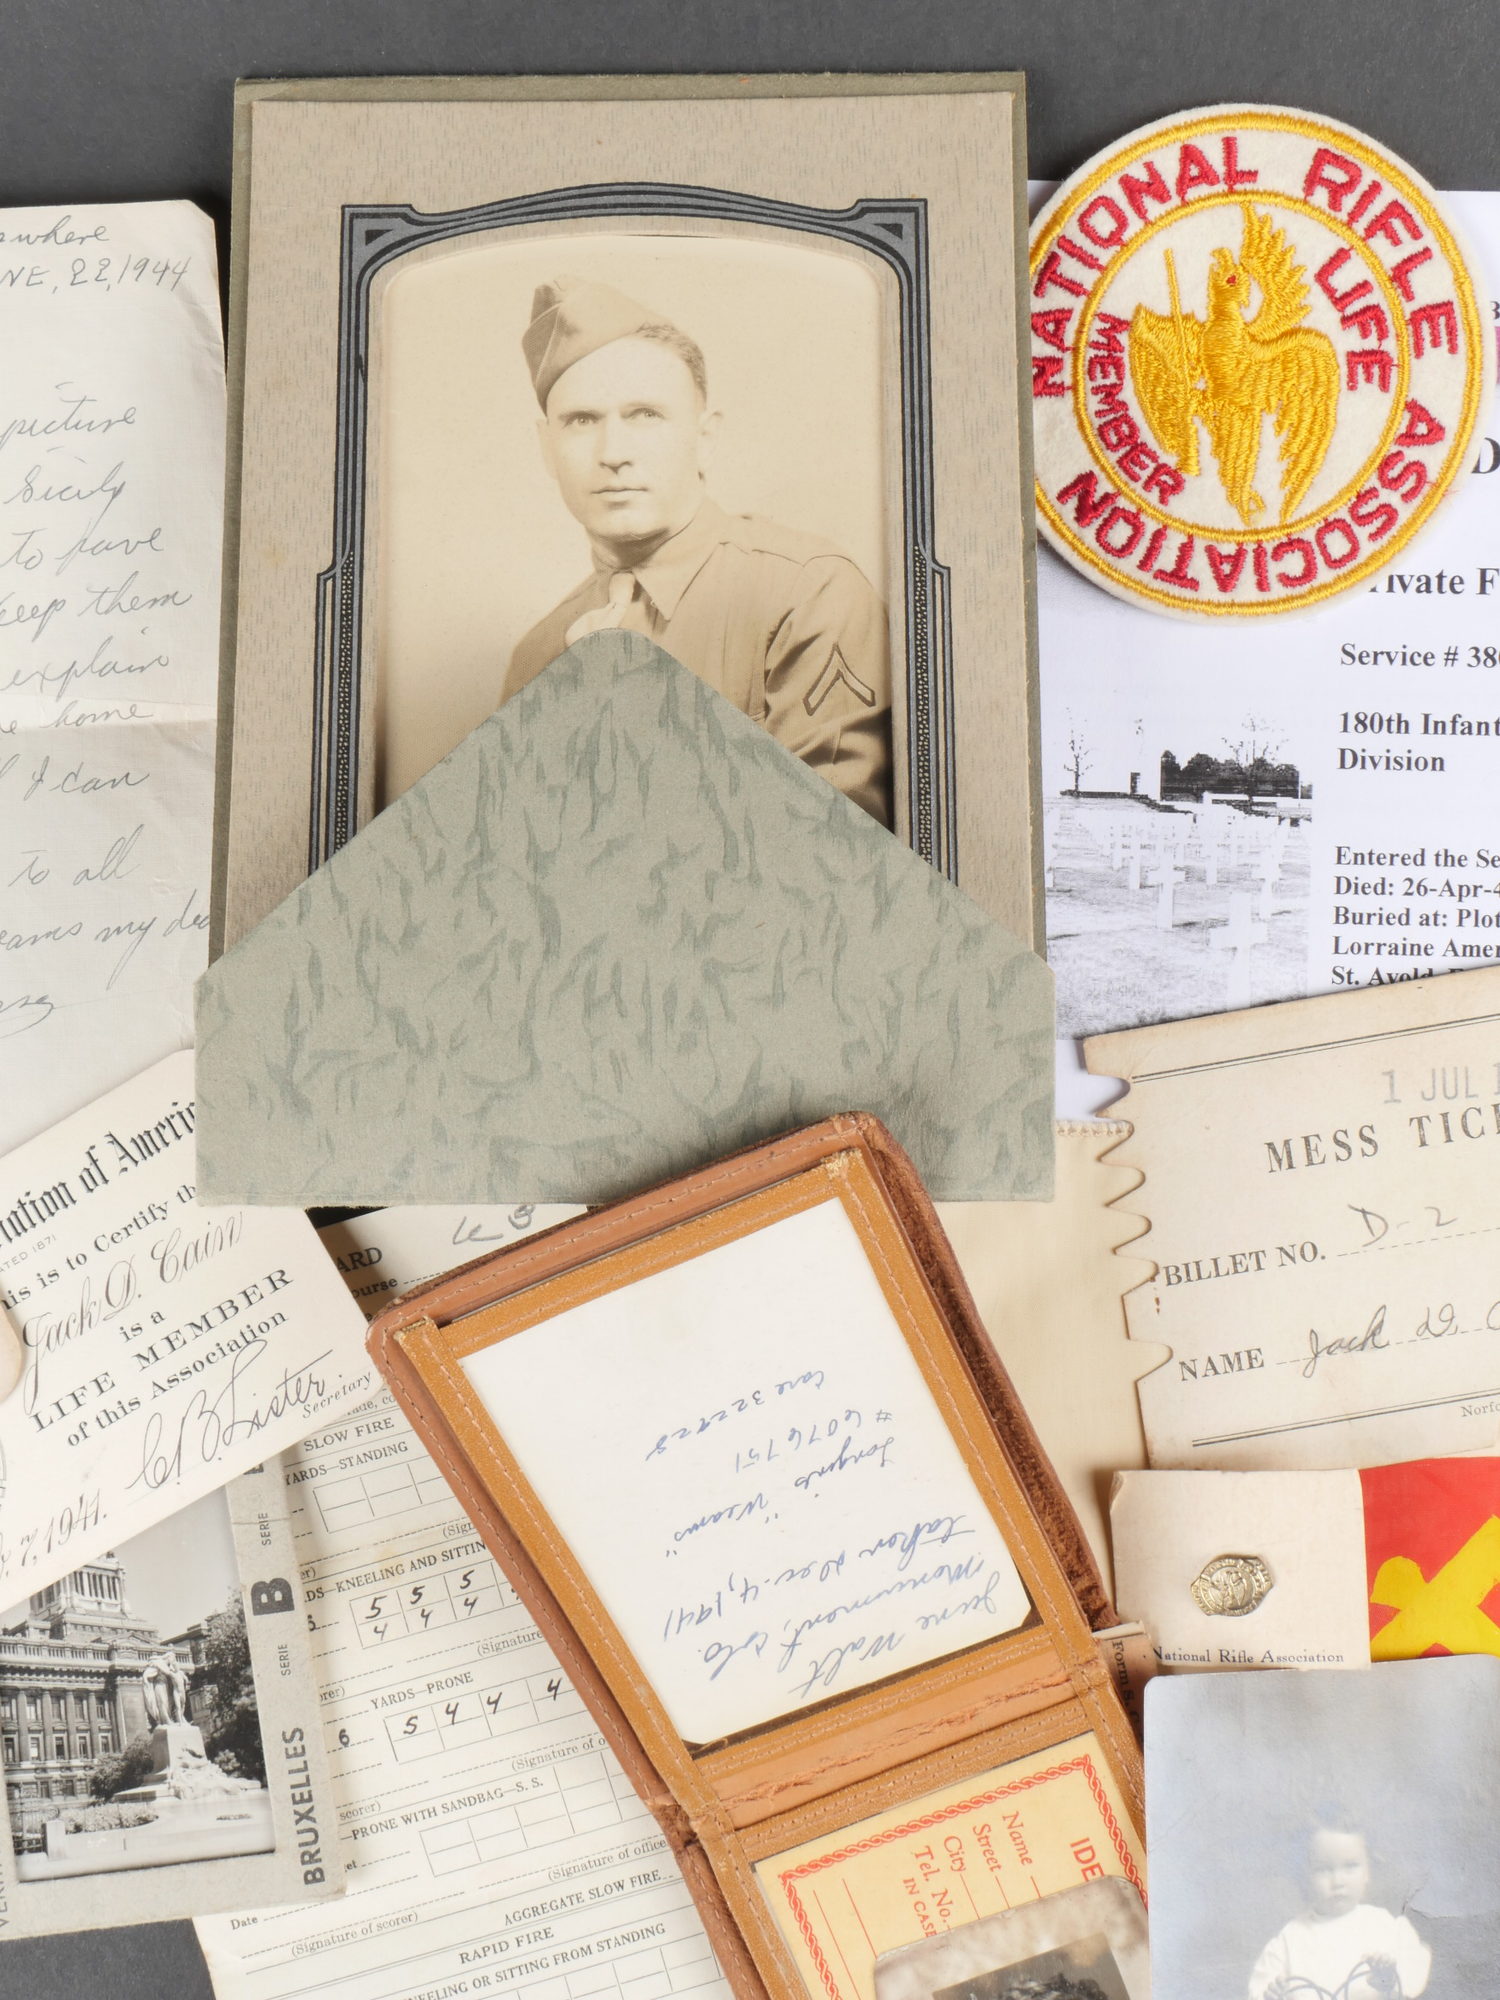 where
NE, 22, 1944
picture
Sicily
to have
keep them
explain
home
I can
to all
my
NATIONAL RIFLE ASSOCIATION
LIFE MEMBER
Service # 380
180th Infant
Division
Entered the Se
Died: 26-Apr-4
Buried at: Plot
Lorraine Amer
St. Avold
1 JUL 1
MESS TICK
BILLET NO. D-2
NAME Jack D. C
Norfo
of Americ
is is to Certify th
Jack D. Cain
is a
LIFE MEMBER
of this Association
C B Lister
Secretary
1941.
ARD
ourse
SLOW FIRE
YARDS—STANDING
KNEELING AND SITTIN
5 5 5
4 4 4
(Signature
YARDS—PRONE
6 5 4 4 4
(Signature of o
scorer)
—PRONE WITH SANDBAG—S. S.
(Signature of office
AGGREGATE SLOW FIRE
Date
(Signature of scorer)
RAPID FIRE
NEELING OR SITTING FROM STANDING
SERIE B
SERIE
BRUXELLES
June Walt
Monument, Colo.
taken Dec. 4, 1941
Longin's "Weams"
# 6076751
Care 322928
IDE
Name
Street
City
Tel. No.
IN CASE
National Rifle Association